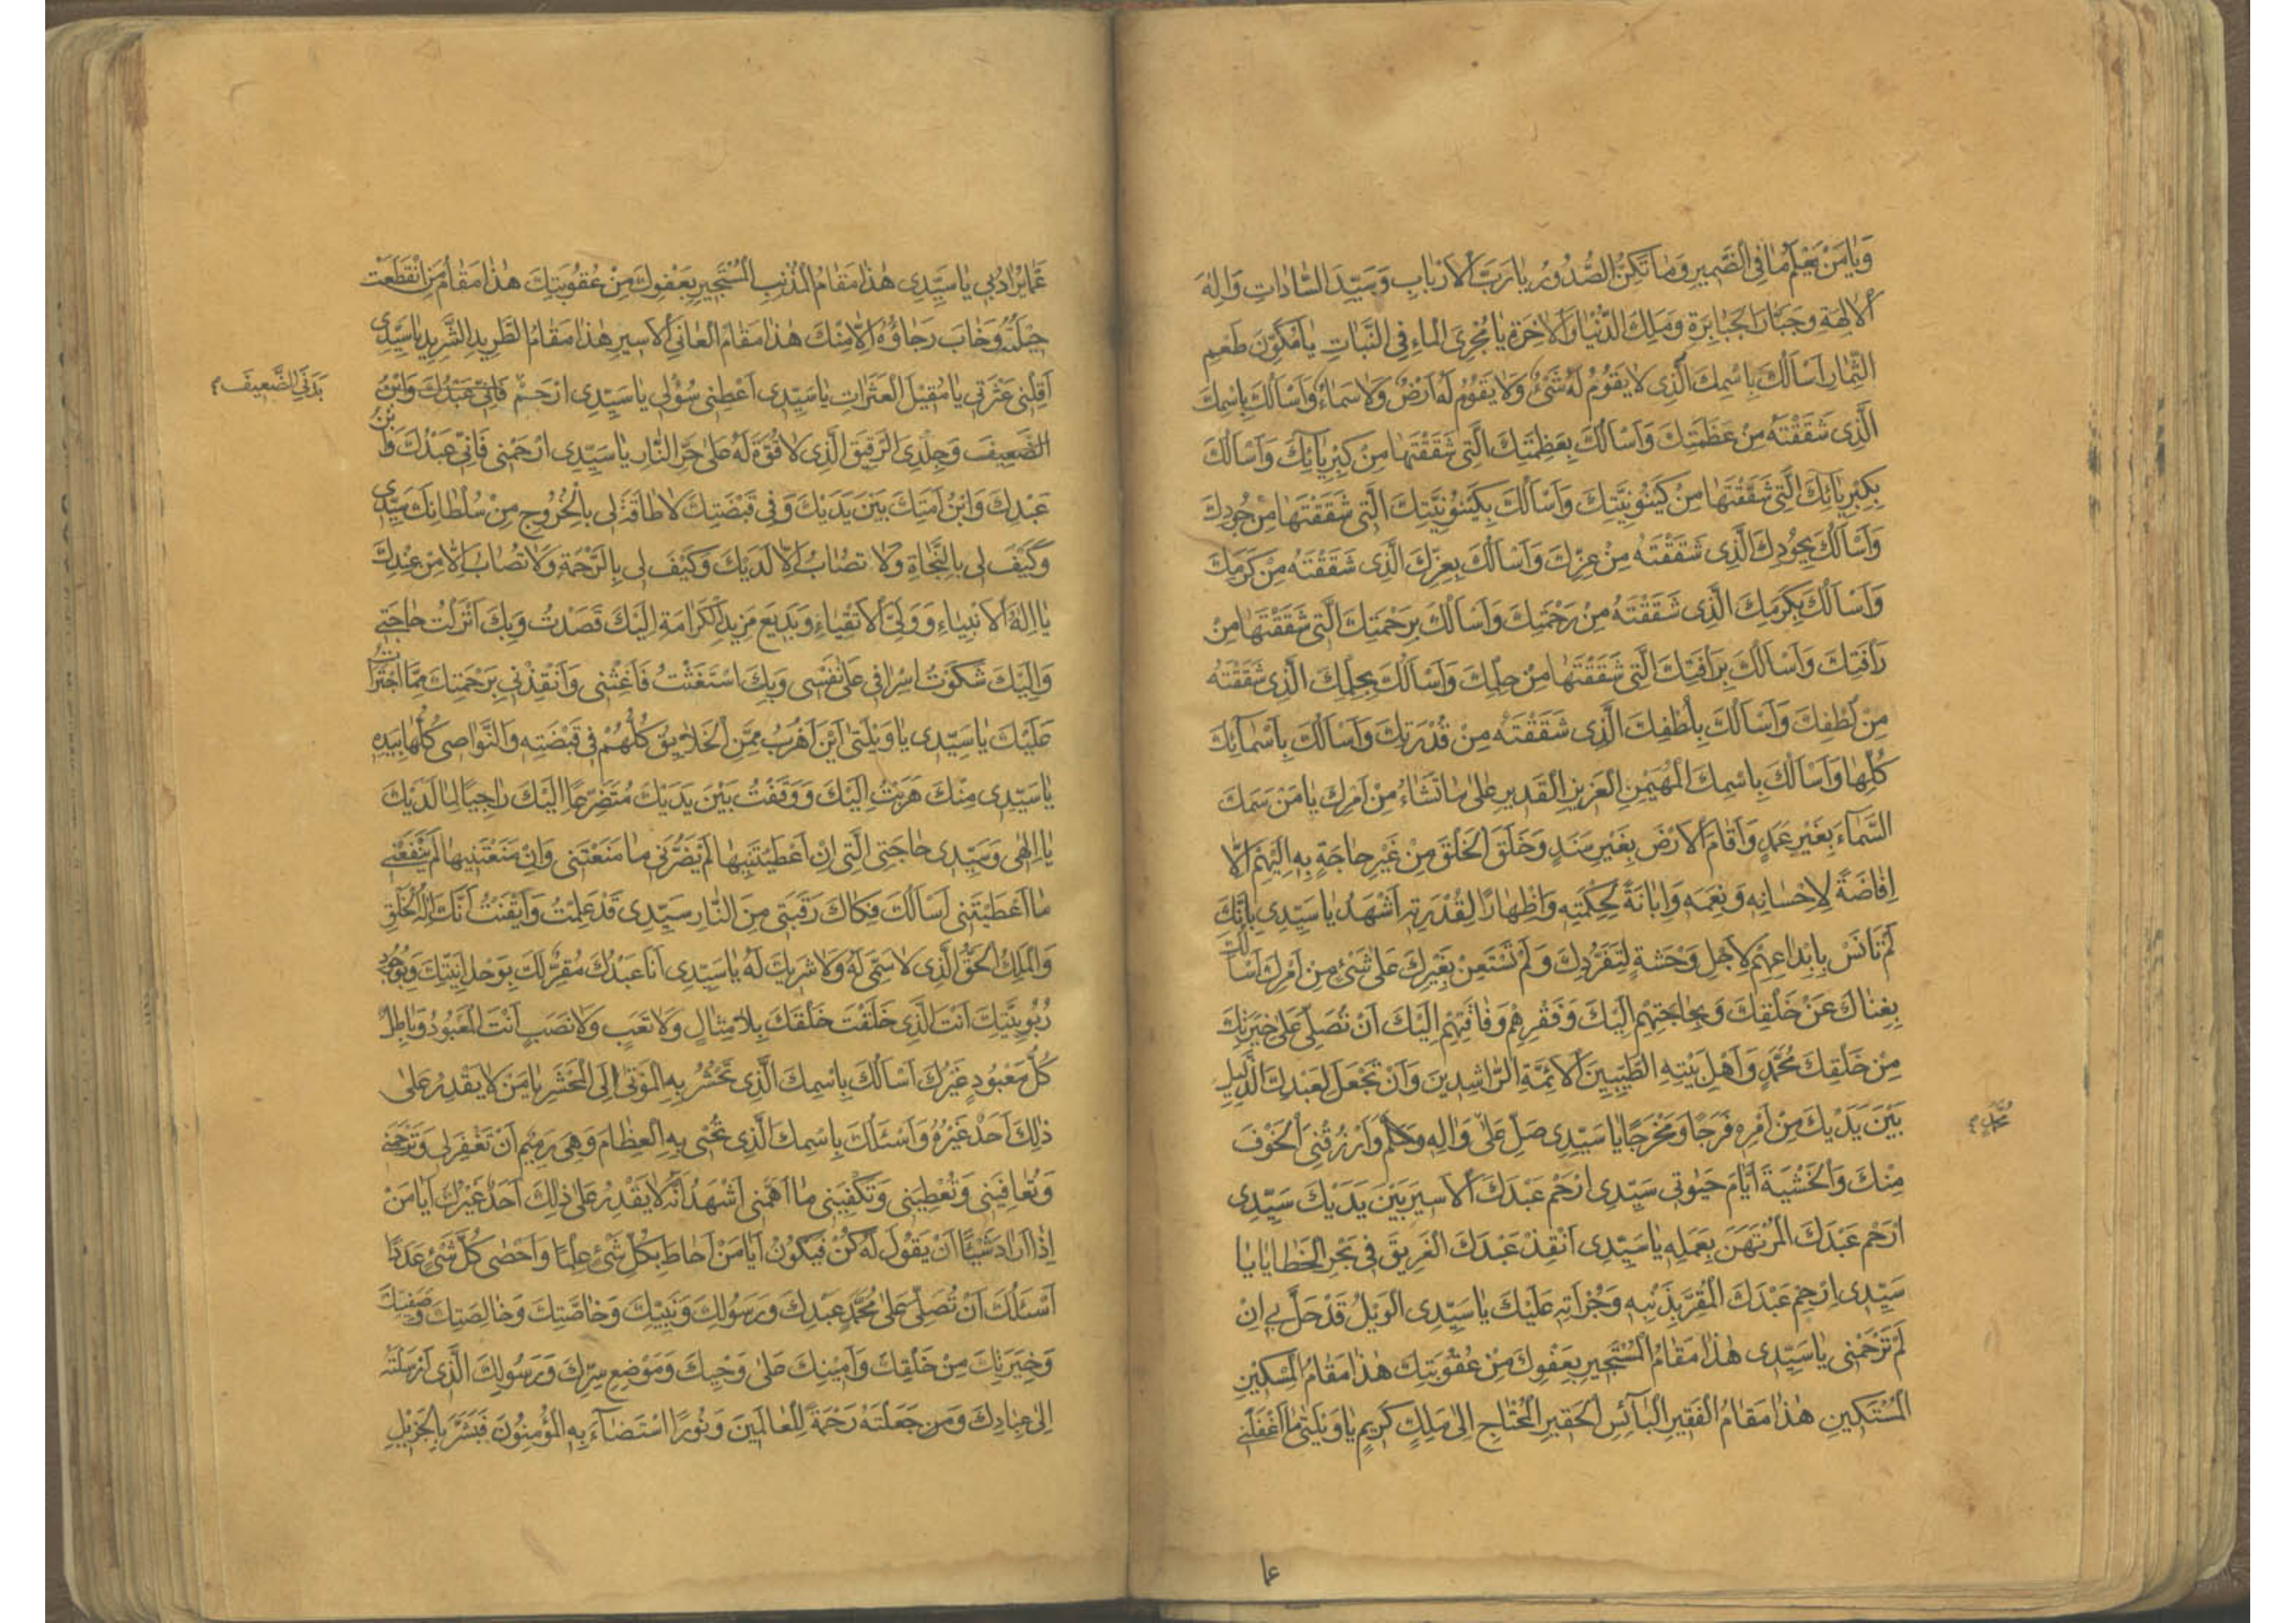 وَيَا مَنْ يَعْلَمُ مَا فِي الضَّمِيرِ وَمَا تُكِنُّ الصُّدُورُ يَا رَبَّ الْاَرْبَابِ وَسَيِّدَ السَّادَاتِ وَاِلٰهَ
الْاٰلِهَةِ وَجَبَّارَ الْجَبَابِرَةِ وَمَلِكَ الدُّنْيَا وَالْاٰخِرَةِ يَا مُجْرِيَ الْمَاءِ فِي النَّبَاتِ يَا مُكَوِّنَ طَعْمِ
الثِّمَارِ اَسْأَلُكَ بِاسْمِكَ الَّذِي لَا يَقُومُ لَهُ شَيْءٌ وَلَا يَقُومُ لَهُ اَرْضٌ وَلَا سَمَاءٌ وَاَسْأَلُكَ بِاسْمِكَ
الَّذِي شَقَقْتَهُ مِنْ عَظَمَتِكَ وَاَسْأَلُكَ بِعَظَمَتِكَ الَّتِي شَقَقْتَهَا مِنْ كِبْرِيَائِكَ وَاَسْأَلُكَ
بِكِبْرِيَائِكَ الَّتِي شَقَقْتَهَا مِنْ كَيْنُونِيَّتِكَ وَاَسْأَلُكَ بِكَيْنُونِيَّتِكَ الَّتِي شَقَقْتَهَا مِنْ جُودِكَ
وَاَسْأَلُكَ بِجُودِكَ الَّذِي شَقَقْتَهُ مِنْ عِزِّكَ وَاَسْأَلُكَ بِعِزِّكَ الَّذِي شَقَقْتَهُ مِنْ كَرَمِكَ
وَاَسْأَلُكَ بِكَرَمِكَ الَّذِي شَقَقْتَهُ مِنْ رَحْمَتِكَ وَاَسْأَلُكَ بِرَحْمَتِكَ الَّتِي شَقَقْتَهَا مِنْ
رَاْفَتِكَ وَاَسْأَلُكَ بِرَاْفَتِكَ الَّتِي شَقَقْتَهَا مِنْ حِلْمِكَ وَاَسْأَلُكَ بِحِلْمِكَ الَّذِي شَقَقْتَهُ
مِنْ لُطْفِكَ وَاَسْأَلُكَ بِلُطْفِكَ الَّذِي شَقَقْتَهُ مِنْ قُدْرَتِكَ وَاَسْأَلُكَ بِاَسْمَائِكَ
كُلِّهَا وَاَسْأَلُكَ بِاسْمِكَ الْمُهَيْمِنِ الْعَزِيزِ الْقَدِيرِ عَلٰى مَا تَشَاءُ مِنْ اَمْرِكَ يَا مَنْ سَمَكَ
السَّمَاءَ بِغَيْرِ عَمَدٍ وَاَقَامَ الْاَرْضَ بِغَيْرِ سَنَدٍ وَخَلَقَ الْخَلْقَ مِنْ غَيْرِ حَاجَةٍ بِهِ اِلَيْهِمْ اِلَّا
اِفَاضَةً لِاِحْسَانِهِ وَنِعَمِهِ وَاِبَانَةً لِحِكْمَتِهِ وَاِظْهَارًا لِقُدْرَتِهِ اَشْهَدُ يَا سَيِّدِي بِاَنَّكَ
لَمْ تَاْنَسْ بِابْتِدَاعِهِمْ لِاَجْلِ وَحْشَةٍ لِتَفَرُّدِكَ وَلَمْ تَسْتَعِنْ بِغَيْرِكَ عَلٰى شَيْءٍ مِنْ اَمْرِكَ اَسْأَلُكَ
بِغِنَاكَ عَنْ خَلْقِكَ وَبِحَاجَتِهِمْ اِلَيْكَ وَفَقْرِهِمْ وَفَاقَتِهِمْ اِلَيْكَ اَنْ تُصَلِّيَ عَلٰى خِيَرَتِكَ
مِنْ خَلْقِكَ مُحَمَّدٍ وَاَهْلِ بَيْتِهِ الطَّيِّبِينَ الْاَئِمَّةِ الرَّاشِدِينَ وَاَنْ تَجْعَلَ لِعَبْدِكَ الذَّلِيلِ
بَيْنَ يَدَيْكَ مِنْ اَمْرِهِ فَرَجًا وَمَخْرَجًا يَا سَيِّدِي صَلِّ عَلٰى وَاٰلِهِ وَارْزُقْنِي الْخَوْفَ
مُحَمَّدٍ
مِنْكَ وَالْخَشْيَةَ اَيَّامَ حَيٰوتِي سَيِّدِي ارْحَمْ عَبْدَكَ الْاَسِيرَ بَيْنَ يَدَيْكَ سَيِّدِي
ارْحَمْ عَبْدَكَ الْمُرْتَهَنَ بِعَمَلِهِ يَا سَيِّدِي اَنْقِذْ عَبْدَكَ الْغَرِيقَ فِي بَحْرِ الْخَطَايَا يَا
سَيِّدِي ارْحَمْ عَبْدَكَ الْمُقِرَّ بِذَنْبِهِ وَجُرْاَتِهِ عَلَيْكَ يَا سَيِّدِي الْوَيْلُ قَدْ حَلَّ بِي اِنْ
لَمْ تَرْحَمْنِي يَا سَيِّدِي هٰذَا مَقَامُ الْمُسْتَجِيرِ بِعَفْوِكَ مِنْ عُقُوبَتِكَ هٰذَا مَقَامُ الْمِسْكِينِ
الْمُسْتَكِينِ هٰذَا مَقَامُ الْفَقِيرِ الْبَائِسِ الْحَقِيرِ الْمُحْتَاجِ اِلٰى مَلِكٍ كَرِيمٍ يَا وَيْلَتٰى مَا اَغْفَلَنِي
عَمَّا يُرَادُ بِي يَا سَيِّدِي هٰذَا مَقَامُ الْمُذْنِبِ الْمُسْتَجِيرِ بِعَفْوِكَ مِنْ عُقُوبَتِكَ هٰذَا مَقَامُ مَنِ انْقَطَعَتْ
حِيلَتُهُ وَخَابَ رَجَاؤُهُ اِلَّا مِنْكَ هٰذَا مَقَامُ الْعَانِي الْاَسِيرِ هٰذَا مَقَامُ الطَّرِيدِ الشَّرِيدِ يَا سَيِّدِي
اَقِلْنِي عَثْرَتِي يَا مُقِيلَ الْعَثَرَاتِ يَا سَيِّدِي اَعْطِنِي سُؤْلِي يَا سَيِّدِي ارْحَمْ فَاِنِّي عَبْدُكَ وَابْنُ
بَدَنِيَ الضَّعِيفَ
الضَّعِيفَ وَجِلْدِيَ الرَّقِيقَ الَّذِي لَا قُوَّةَ لَهُ عَلٰى حَرِّ النَّارِ يَا سَيِّدِي ارْحَمْنِي فَاِنِّي عَبْدُكَ وَابْنُ
عَبْدِكَ وَابْنُ اَمَتِكَ بَيْنَ يَدَيْكَ وَفِي قَبْضَتِكَ لَا طَاقَةَ لِي بِالْخُرُوجِ مِنْ سُلْطَانِكَ سَيِّدِي
وَكَيْفَ لِي بِالنَّجَاةِ وَلَا تُصَابُ اِلَّا لَدَيْكَ وَكَيْفَ لِي بِالرَّحْمَةِ وَلَا تُصَابُ اِلَّا مِنْ عِنْدِكَ
يَا اِلٰهَ الْاَنْبِيَاءِ وَوَلِيَّ الْاَتْقِيَاءِ وَبَدِيعَ مَزِيدِ الْكَرَامَةِ اِلَيْكَ قَصَدْتُ وَبِكَ اَنْزَلْتُ حَاجَتِي
وَاِلَيْكَ شَكَوْتُ اِسْرَافِي عَلٰى نَفْسِي وَبِكَ اسْتَغَثْتُ فَاَغِثْنِي وَاَنْقِذْنِي بِرَحْمَتِكَ مِمَّا اجْتَرَأْتُ
عَلَيْكَ يَا سَيِّدِي يَا وَيْلَتٰى اَيْنَ اَهْرُبُ مِمَّنِ الْخَلَائِقُ كُلُّهُمْ فِي قَبْضَتِهِ وَالنَّوَاصِي كُلُّهَا بِيَدِهِ
يَا سَيِّدِي مِنْكَ هَرَبْتُ اِلَيْكَ وَوَقَفْتُ بَيْنَ يَدَيْكَ مُتَضَرِّعًا اِلَيْكَ رَاجِيًا لِمَا لَدَيْكَ
يَا اِلٰهِي وَسَيِّدِي حَاجَتِيَ الَّتِي اِنْ اَعْطَيْتَنِيهَا لَمْ يَضُرَّنِي مَا مَنَعْتَنِي وَاِنْ مَنَعْتَنِيهَا لَمْ يَنْفَعْنِي
مَا اَعْطَيْتَنِي اَسْأَلُكَ فَكَاكَ رَقَبَتِي مِنَ النَّارِ سَيِّدِي قَدْ عَلِمْتُ وَاَيْقَنْتُ اَنَّكَ اِلٰهُ الْخَلْقِ
وَالْمَلِكُ الْحَقُّ الَّذِي لَا سَمِيَّ لَهُ وَلَا شَرِيكَ لَهُ يَا سَيِّدِي اَنَا عَبْدُكَ مُقِرٌّ لَكَ بِوَحْدَانِيَّتِكَ وَبِوُجُودِ
رُبُوبِيَّتِكَ اَنْتَ الَّذِي خَلَقْتَ خَلْقَكَ بِلَا مِثَالٍ وَلَا تَعَبٍ وَلَا نَصَبٍ اَنْتَ الْمَعْبُودُ وَبَاطِلٌ
كُلُّ مَعْبُودٍ غَيْرُكَ اَسْأَلُكَ بِاسْمِكَ الَّذِي تَحْشُرُ بِهِ الْمَوْتٰى اِلَى الْمَحْشَرِ يَا مَنْ لَا يَقْدِرُ عَلٰى
ذٰلِكَ اَحَدٌ غَيْرُهُ وَاَسْئَلُكَ بِاسْمِكَ الَّذِي تُحْيِي بِهِ الْعِظَامَ وَهِيَ رَمِيمٌ اَنْ تَغْفِرَ لِي وَتَرْحَمَنِي
وَتُعَافِيَنِي وَتُعْطِيَنِي وَتَكْفِيَنِي مَا اَهَمَّنِي اَشْهَدُ اَنَّهُ لَا يَقْدِرُ عَلٰى ذٰلِكَ اَحَدٌ غَيْرُكَ اَيَا مَنْ
اِذَا اَرَادَ شَيْئًا اَنْ يَقُولَ لَهُ كُنْ فَيَكُونُ اَيَا مَنْ اَحَاطَ بِكُلِّ شَيْءٍ عِلْمًا وَاَحْصٰى كُلَّ شَيْءٍ عَدَدًا
اَسْئَلُكَ اَنْ تُصَلِّيَ عَلٰى مُحَمَّدٍ عَبْدِكَ وَرَسُولِكَ وَنَبِيِّكَ وَخَاصَّتِكَ وَخَالِصَتِكَ وَصَفِيِّكَ
وَخِيَرَتِكَ مِنْ خَلْقِكَ وَاَمِينِكَ عَلٰى وَحْيِكَ وَمَوْضِعِ سِرِّكَ وَرَسُولِكَ الَّذِي اَرْسَلْتَهُ
اِلٰى عِبَادِكَ وَمَنْ جَعَلْتَهُ رَحْمَةً لِلْعَالَمِينَ وَنُورًا اسْتَضَاءَ بِهِ الْمُؤْمِنُونَ فَبَشَّرَ بِالْجَزِيلِ
عما